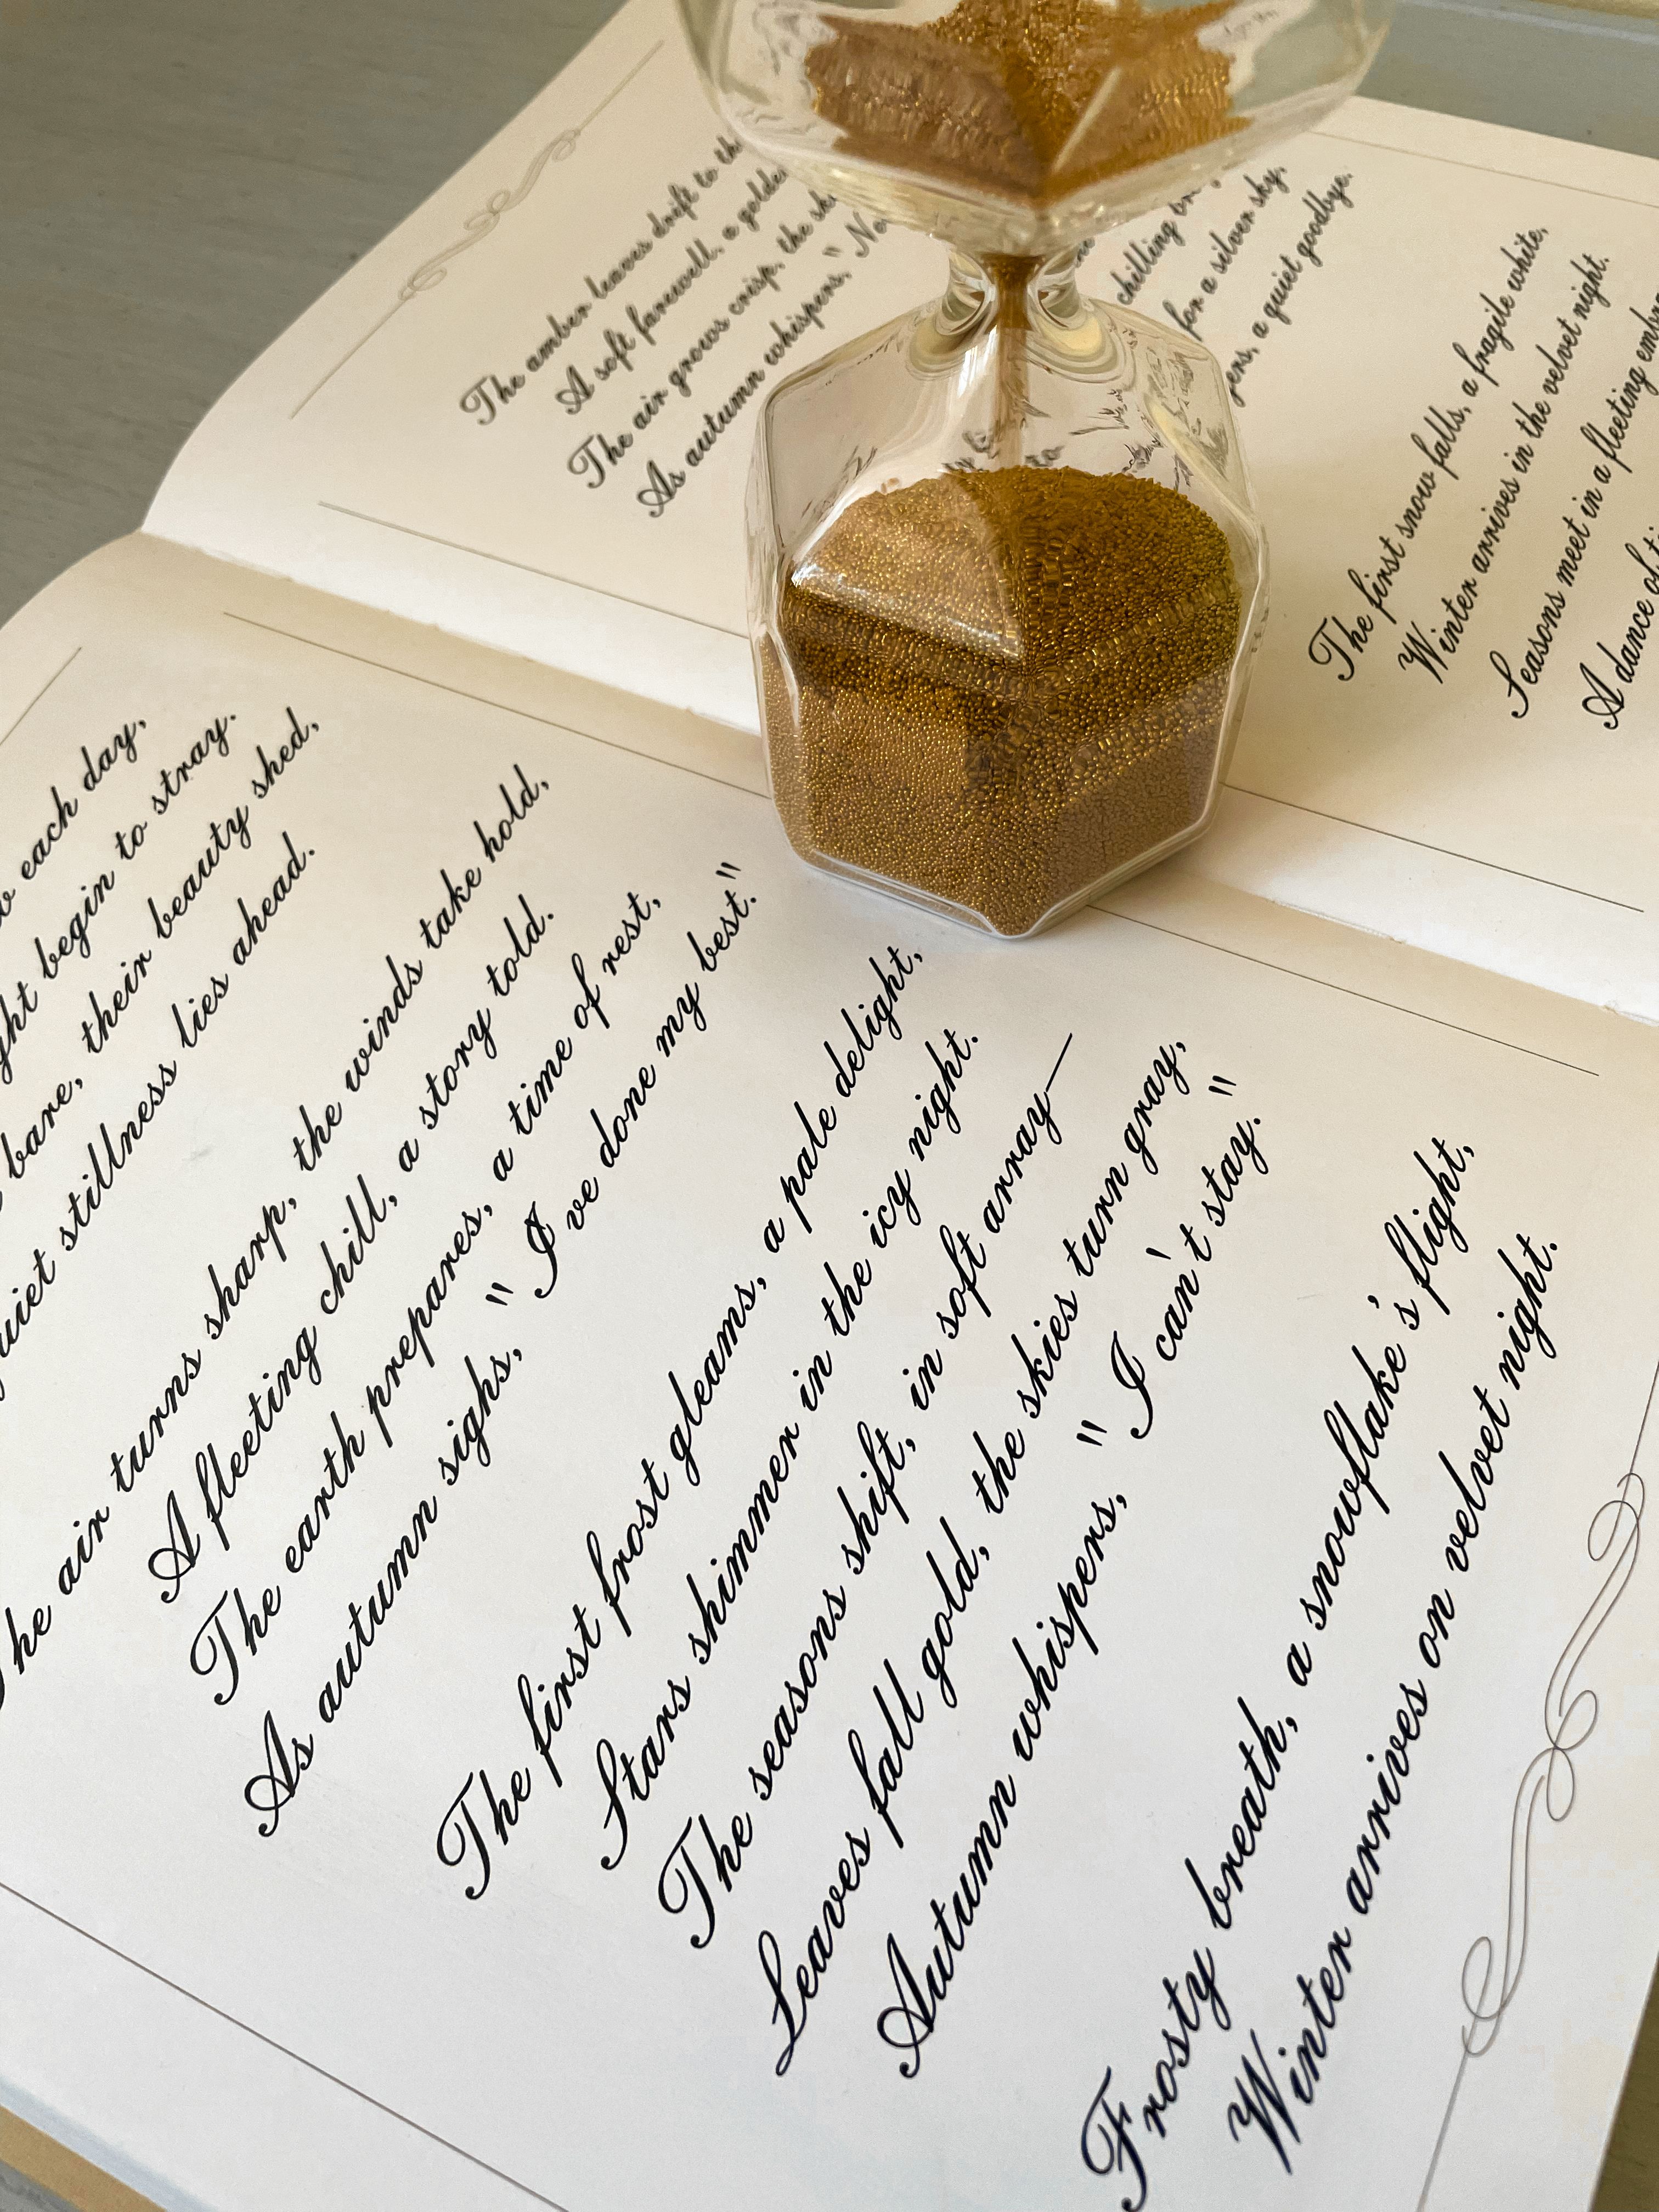 The amber leaves drift to
A soft farewell, a golden
The air grows crisp, the
As autumn whispers, "
chilling
for a silver sky,
a quiet goodbye.
The first snow falls, a fragile white,
Winter arrives in the velvet night.
Seasons meet in a fleeting
A dance of
each day,
begin to stray.
bare, their beauty shed,
stillness lies ahead.
The air turns sharp, the winds take hold,
A fleeting chill, a story told.
The earth prepares, a time of rest,
As autumn sighs, "I've done my best."
The first frost gleams, a pale delight,
Stars shimmer in the icy night.
The seasons shift, in soft array—
Leaves fall gold, the skies turn gray,
Autumn whispers, "I can't stay."
Frosty breath, a snowflake's flight,
Winter arrives on velvet night.